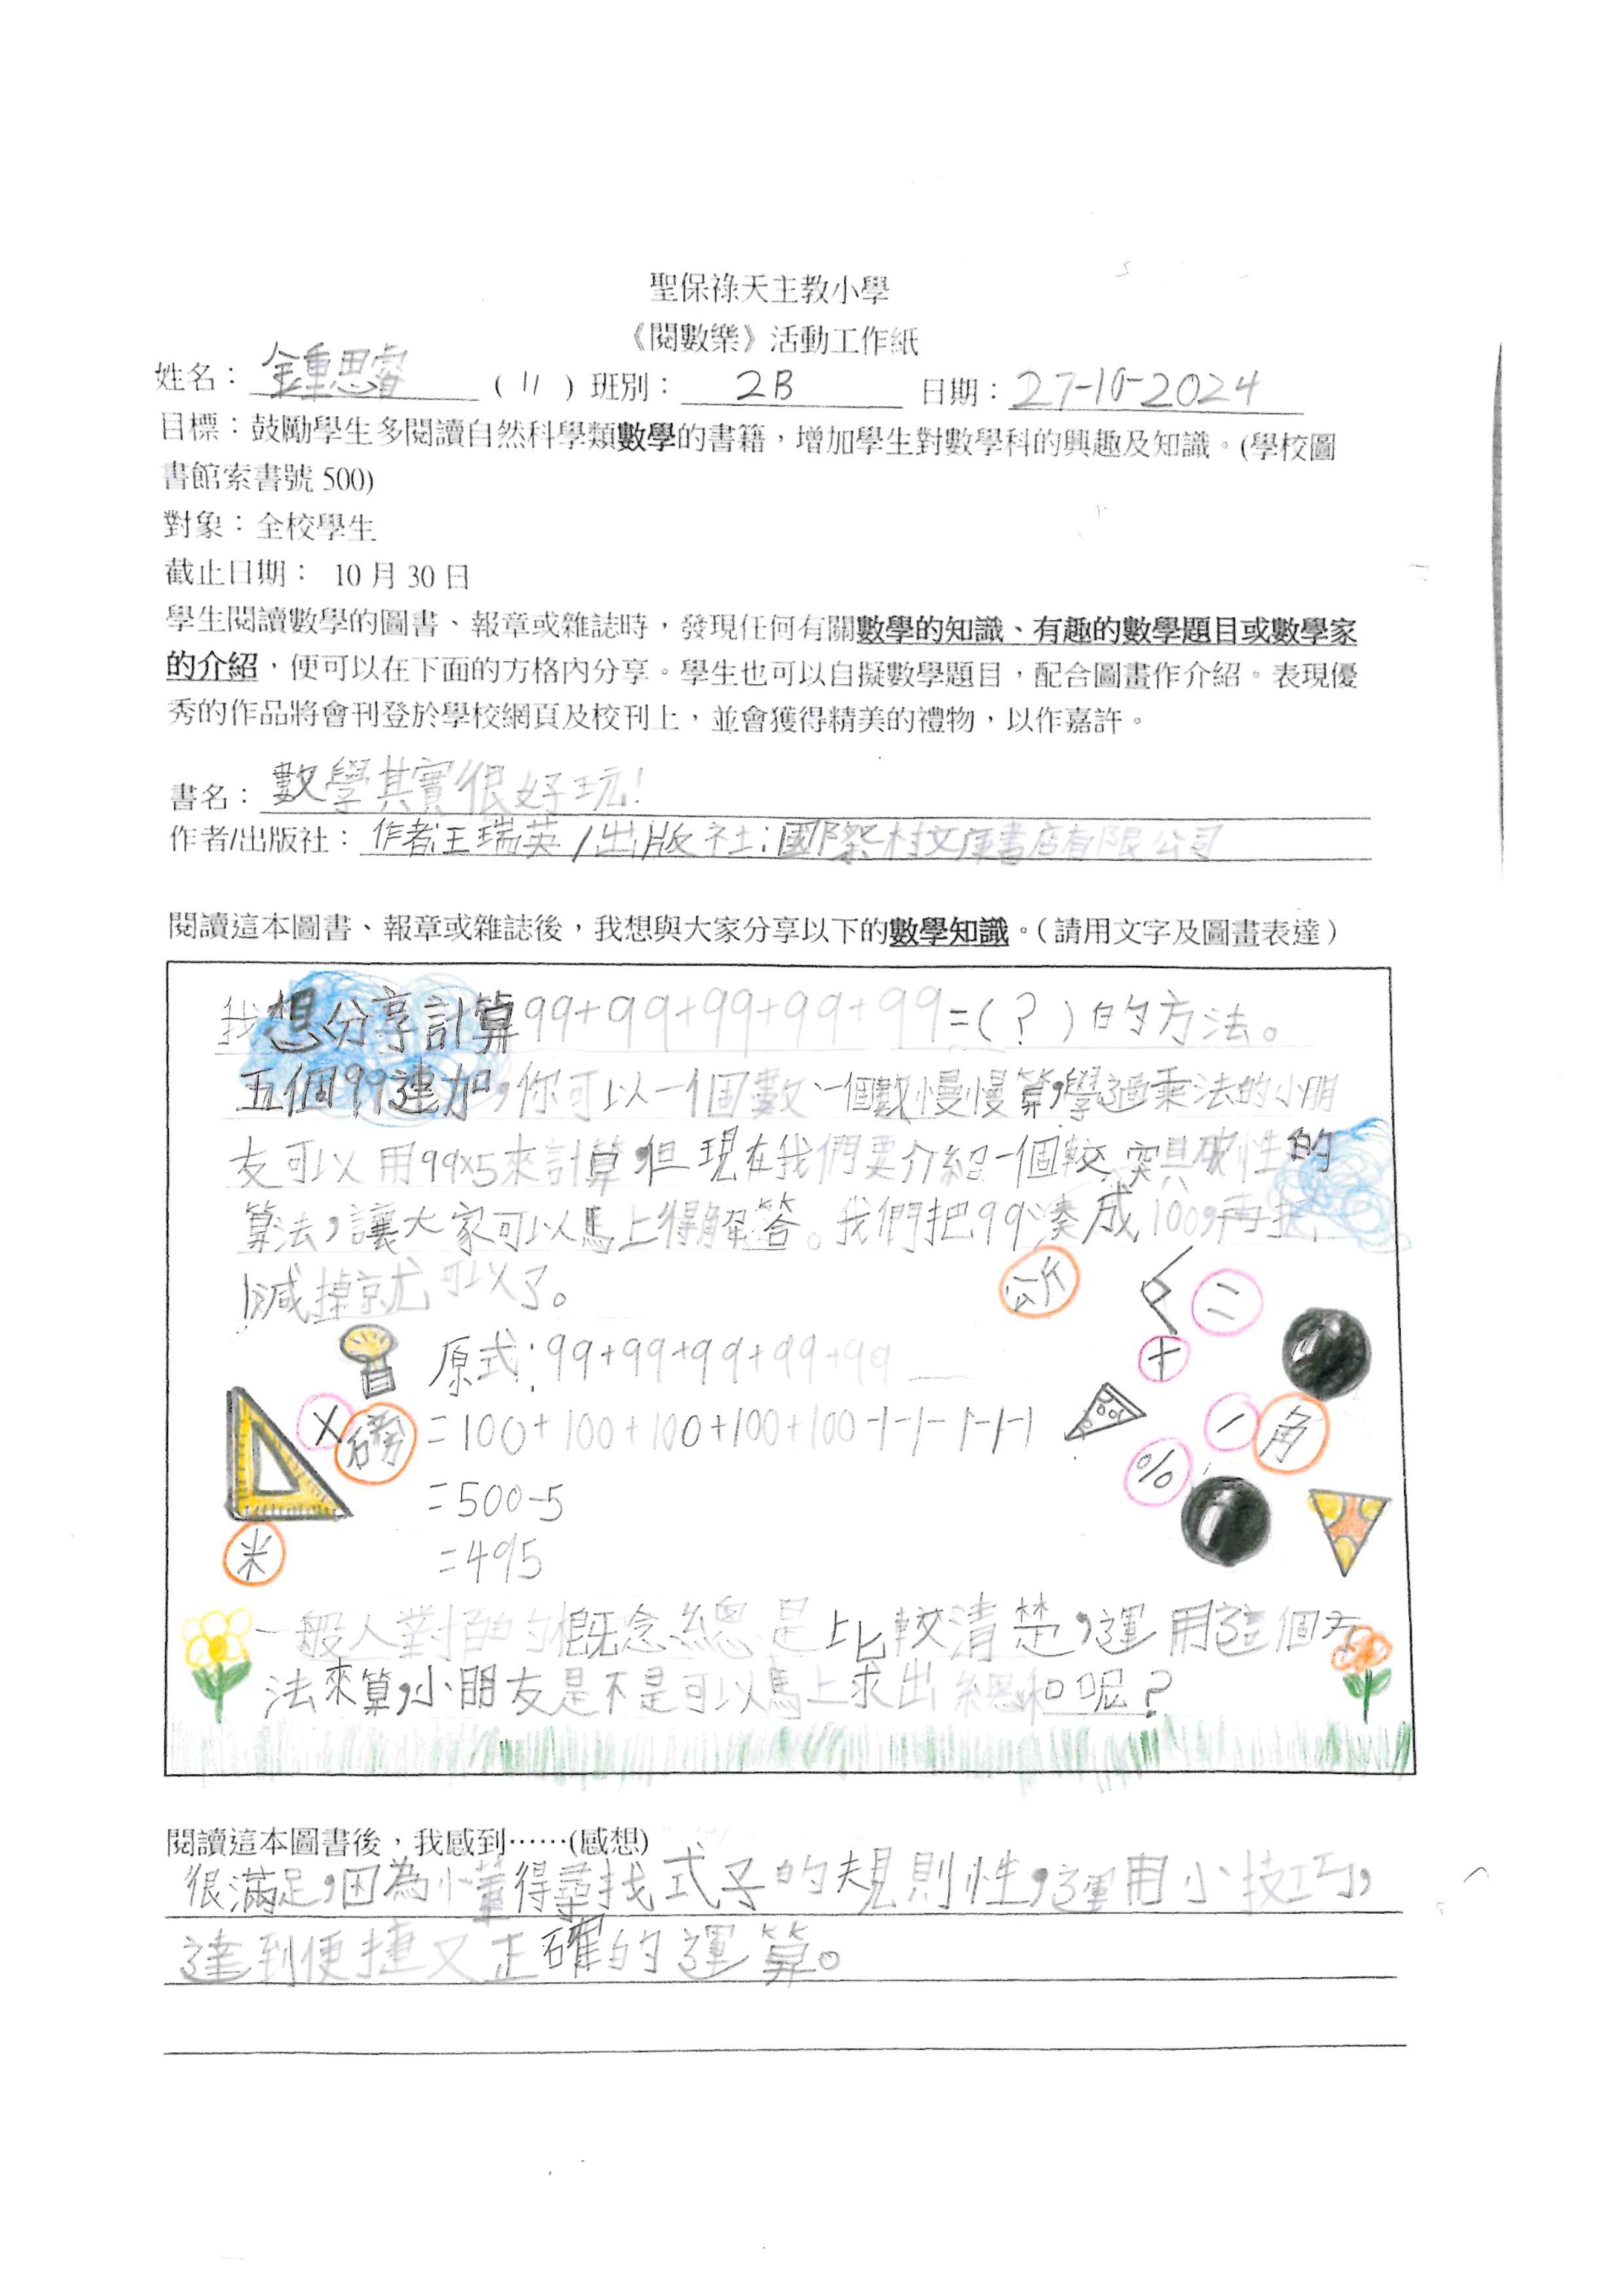 聖保祿天主教小學
《閱數樂》活動工作紙
姓名：鍾思睿 ( 11 ) 班別：2B 日期：27-10-2024
目標：鼓勵學生多閱讀自然科學類數學的書籍，增加學生對數學科的興趣及知識。(學校圖
書館索書號 500)
對象：全校學生
截止日期： 10 月 30 日
學生閱讀數學的圖書、報章或雜誌時，發現任何有關數學的知識、有趣的數學題目或數學家
的介紹，便可以在下面的方格內分享。學生也可以自擬數學題目，配合圖畫作介紹。表現優
秀的作品將會刊登於學校網頁及校刊上，並會獲得精美的禮物，以作嘉許。
書名：數學其實很好玩！
作者/出版社：作者:王瑞英/出版社:國際村文庫書店有限公司
閱讀這本圖書、報章或雜誌後，我想與大家分享以下的數學知識。（請用文字及圖畫表達）
我想分享計算99+99+99+99+99=(?)的方法。
五個99連加，你可以一個數一個數慢慢算，學過乘法的小朋
友可以用99×5來計算，但現在我們要介紹一個較突具破性的
算法，讓大家可以馬上得解答。我們把99湊成100，再把
1減掉就可以了。
公斤
=
+
原式:99+99+99+99+99
×
磅
=100+100+100+100+100-1-1-1-1-1
-
角
%
=500-5
米
=495
一般人對100的概念總是比較清楚，運用這個方
法來算，小朋友是不是可以馬上求出總和呢？
閱讀這本圖書後，我感到……(感想)
很滿足，因為懂得尋找式子的規則性，運用小技巧，
達到便捷又正確的運算。